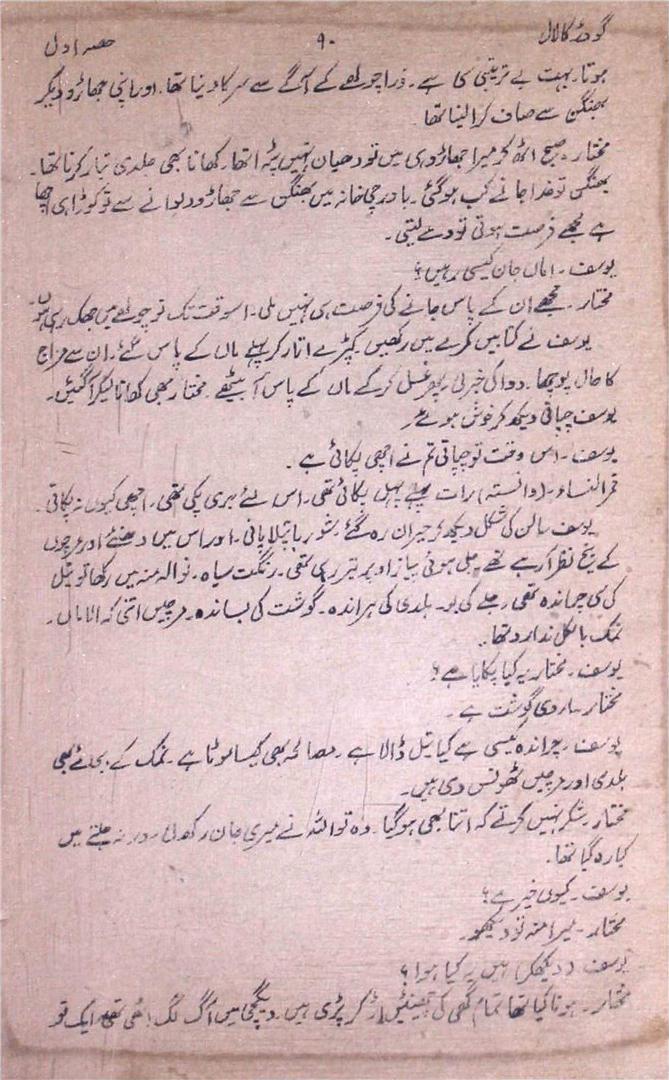 گودڑ کا لال ۹۰ حصہ اول
ہوتا۔ بہت بے ترتیبی کی ہے۔ ذرا چولھے کے آگے سے سرکا دینا تھا۔ اور اپنی جھاڑو دیکر
بھنگن سے صاف کرا لینا تھا
مختار۔ صبح اٹھ کر میرا جھاڑو ہی میں تو دھیان نہیں پڑا تھا۔ کھانا بھی جلدی تیار کرنا تھا۔
بھنگن تو خدا جانے کب ہو گئی۔ باورچی خانہ میں بھنگن سے جھاڑو دلوانے سے تو کوڑا ہی اچھا
ہے مجھے فرصت ہوتی تو دے لیتی۔
یوسف۔ اماں جان کیسی رہیں؟
مختار۔ مجھے ان کے پاس جانے کی فرصت ہی نہیں ملی۔ اسوقت تک تو چولھے میں جھک رہی ہوں۔
یوسف نے کتابیں کمرے میں رکھیں کپڑے اتار کر پہلے ماں کے پاس گئے۔ ان سے مزاج
کا حال پوچھا۔ دوا کی خبر لی۔ پھر غسل کر کے ماں کے پاس آ بیٹھے۔ مختار بھی کھانا لیکر آ گئیں۔
یوسف چپاتی دیکھ کر خوش ہوئے۔
یوسف۔ اس وقت تو چپاتی تم نے اچھی پکائی ہے۔
قمر النساء۔ (دانستہ) رات پہلے پہل پکائی تھی۔ اس لئے بری پکی تھی۔ اچھی کیوں نہ پکاتی۔
یوسف سالن کی شکل دیکھ کر حیران رہ گئے۔ شوربا پتلا پانی۔ اور اس میں دھنئے اور مرچوں
کے بیج نظر آ رہے تھے جلی ہوئی پیاز اوپر تیر رہی تھی۔ رنگت سیاہ۔ نوالہ منہ میں رکھا تو تیل
کی سی چراندہ تھی جلے کی بو۔ ہلدی کی ہراندہ۔ گوشت کی بساندہ۔ مرچیں اتنی کہ الاماں۔
نمک بالکل ندارد تھا۔
یوسف۔ مختار یہ کیا پکایا ہے؟
مختار۔ اروی گوشت ہے۔
یوسف۔ چراندہ کیسی ہے کیا تیل ڈالا ہے۔ مصالحہ بھی کیسا موٹا ہے۔ نمک کے بجائے بھی
ہلدی اور مرچیں ٹھونس دی ہیں۔
مختار۔ شکر نہیں کرتے کہ اتنا بھی ہو گیا۔ وہ تو اللہ نے میری جان رکھ لی ورنہ جلنے میں
کیا رہ گیا تھا۔
یوسف۔ کیوں خیر ہے؟
مختار۔ میرا منہ تو دیکھو۔
یوسف۔ (دیکھکر) ہیں یہ کیا ہوا؟
مختار۔ ہوتا کیا تھا تمام گھی کی چھینٹیں اڑ کر پڑی ہیں۔ دیگچی میں آگ لگ اٹھی تھی۔ ایک تو